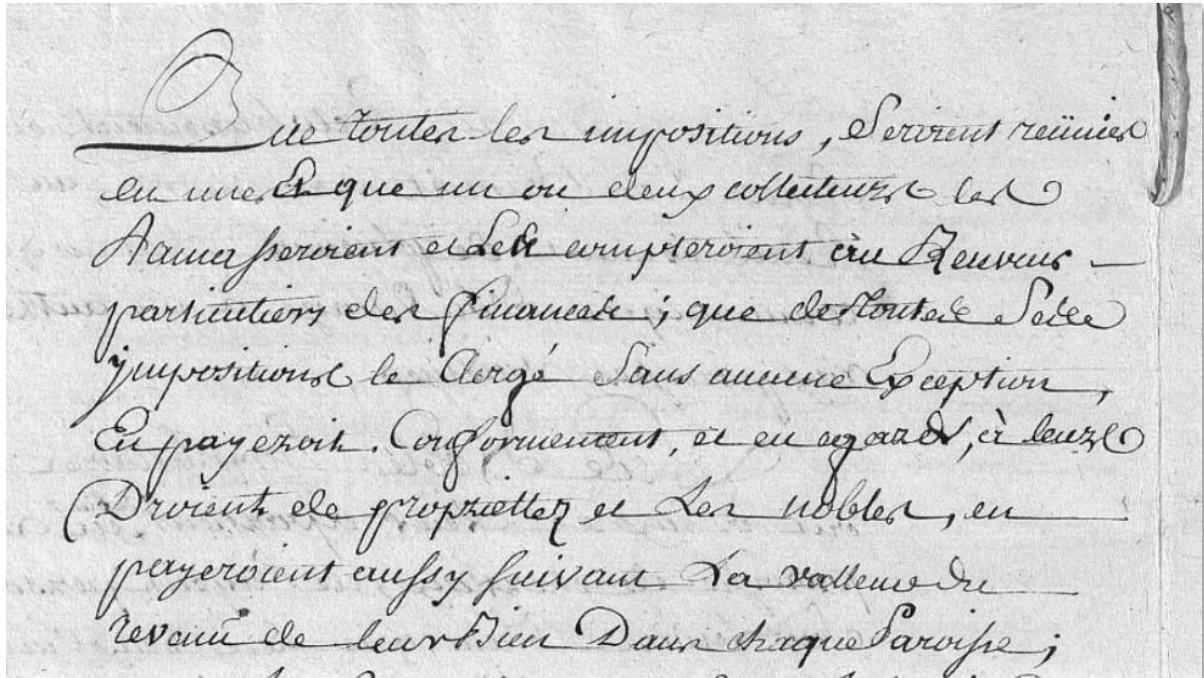 Que toutes les impositions, Seroient reünies
en une Et que un ou deux collecteurs les
Ramasseroient et Les compteroient au Receveur
particuliers des finances ; que de toutes Sesdes
jmpositions le Clergé Sans aucune Exception,
En payeroit. Conformement, et en egard, à leurs
Droient de propriettez et Les nobles, en
payeroient aussy suivant La valleur du
revenu de leurs Bien Dans chaque Paroisse ;